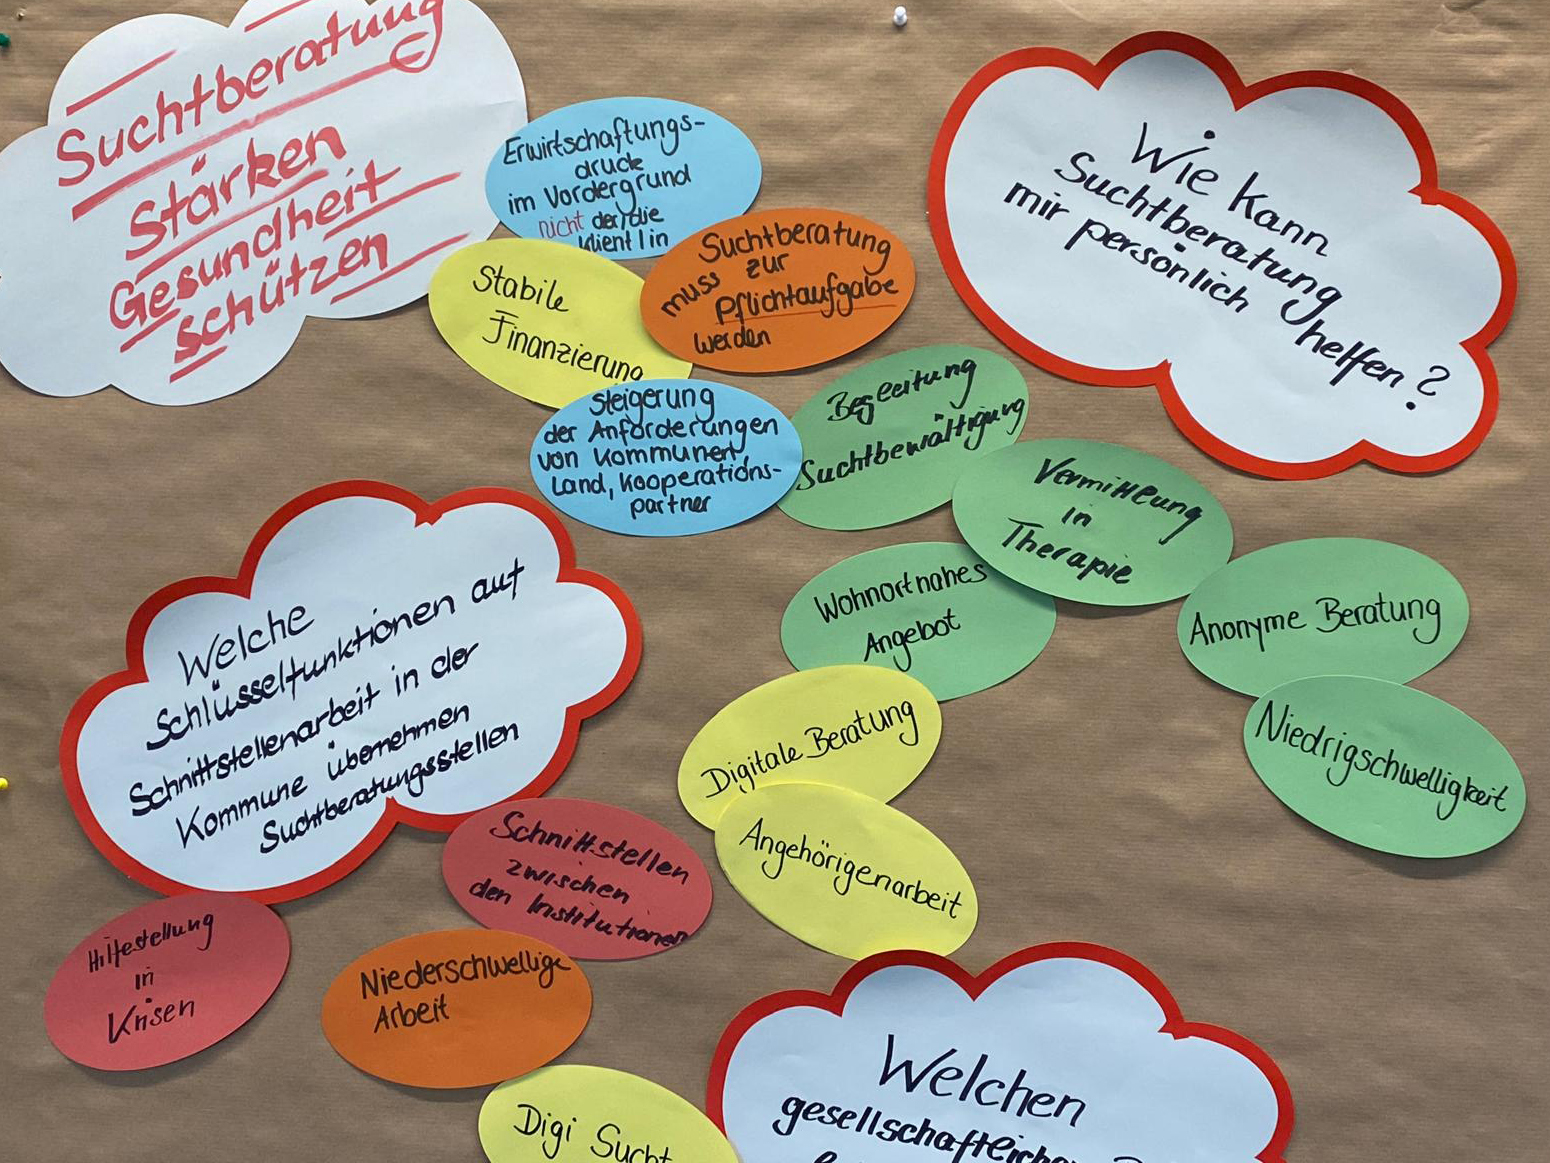 Suchtberatung
Stärken
Gesundheit
schützen
Erwirtschaftungs-
druck
im Vordergrund
nicht der/die
Klient/in
Stabile
Finanzierung
Suchtberatung
muss zur
Pflichtaufgabe
werden
Steigerung
der Anforderungen
von Kommunen,
Land, Kooperations-
partner
Wie kann
Suchtberatung
mir persönlich
helfen?
Begleitung
Suchtbewältigung
Vermittlung
in
Therapie
Wohnortnahes
Angebot
Anonyme Beratung
Niedrigschwelligkeit
Digitale Beratung
Angehörigenarbeit
Welche
Schlüsselfunktionen auf
Schnittstellenarbeit in der
Kommune übernehmen
Suchtberatungsstellen
Schnittstellen
zwischen
den Institutionen
Hilfestellung
in
Krisen
Niederschwellige
Arbeit
Digi Sucht
Welchen
gesellschaftlichen